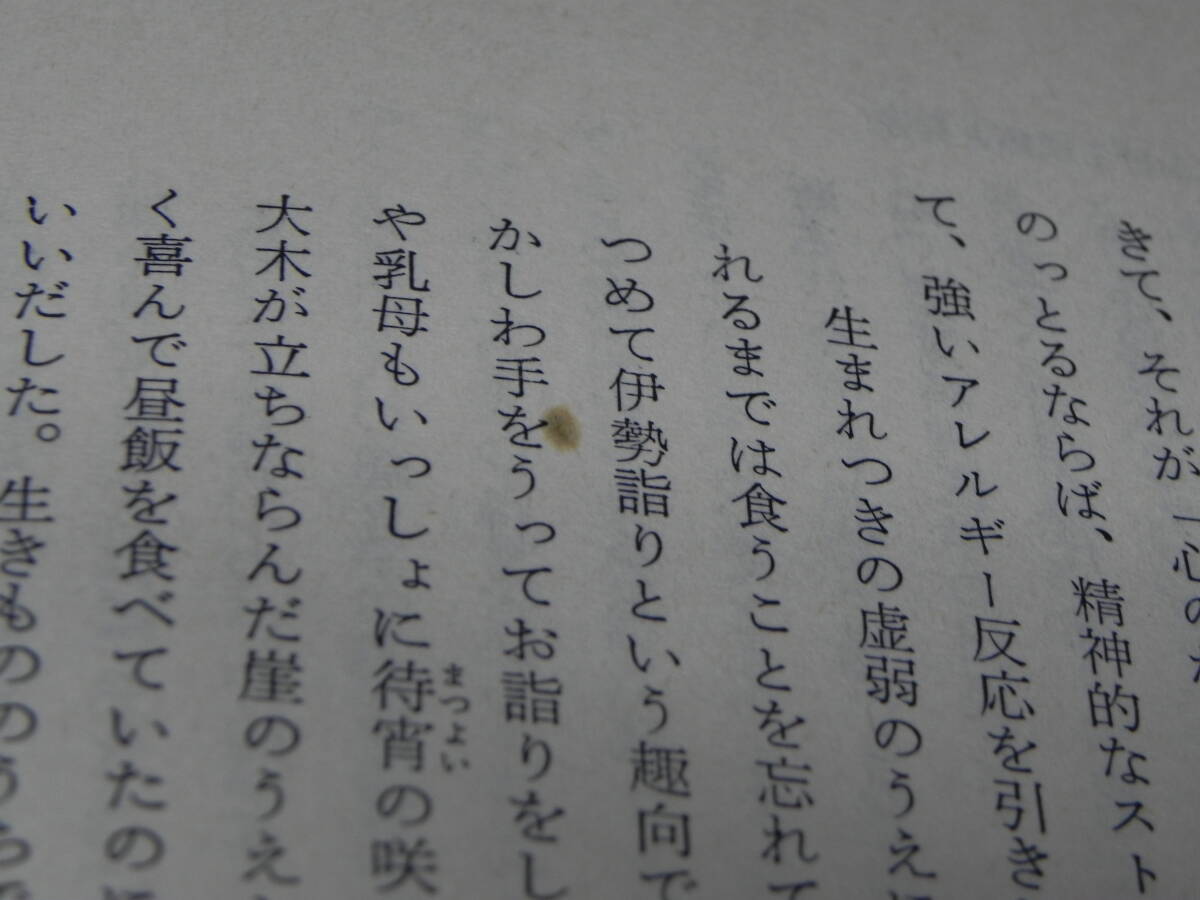 きて、それが一心の
のっとるならば、精神的なスト
て、強いアレルギー反応を引き
生まれつきの虚弱のうえに
れるまでは食うことを忘れて
つめて伊勢詣りという趣向で
かしわ手をうってお詣りをし
や乳母もいっしょに待宵の咲
まつよい
大木が立ちならんだ崖のうえ
く喜んで昼飯を食べていたの
いいだした。生きもののうち